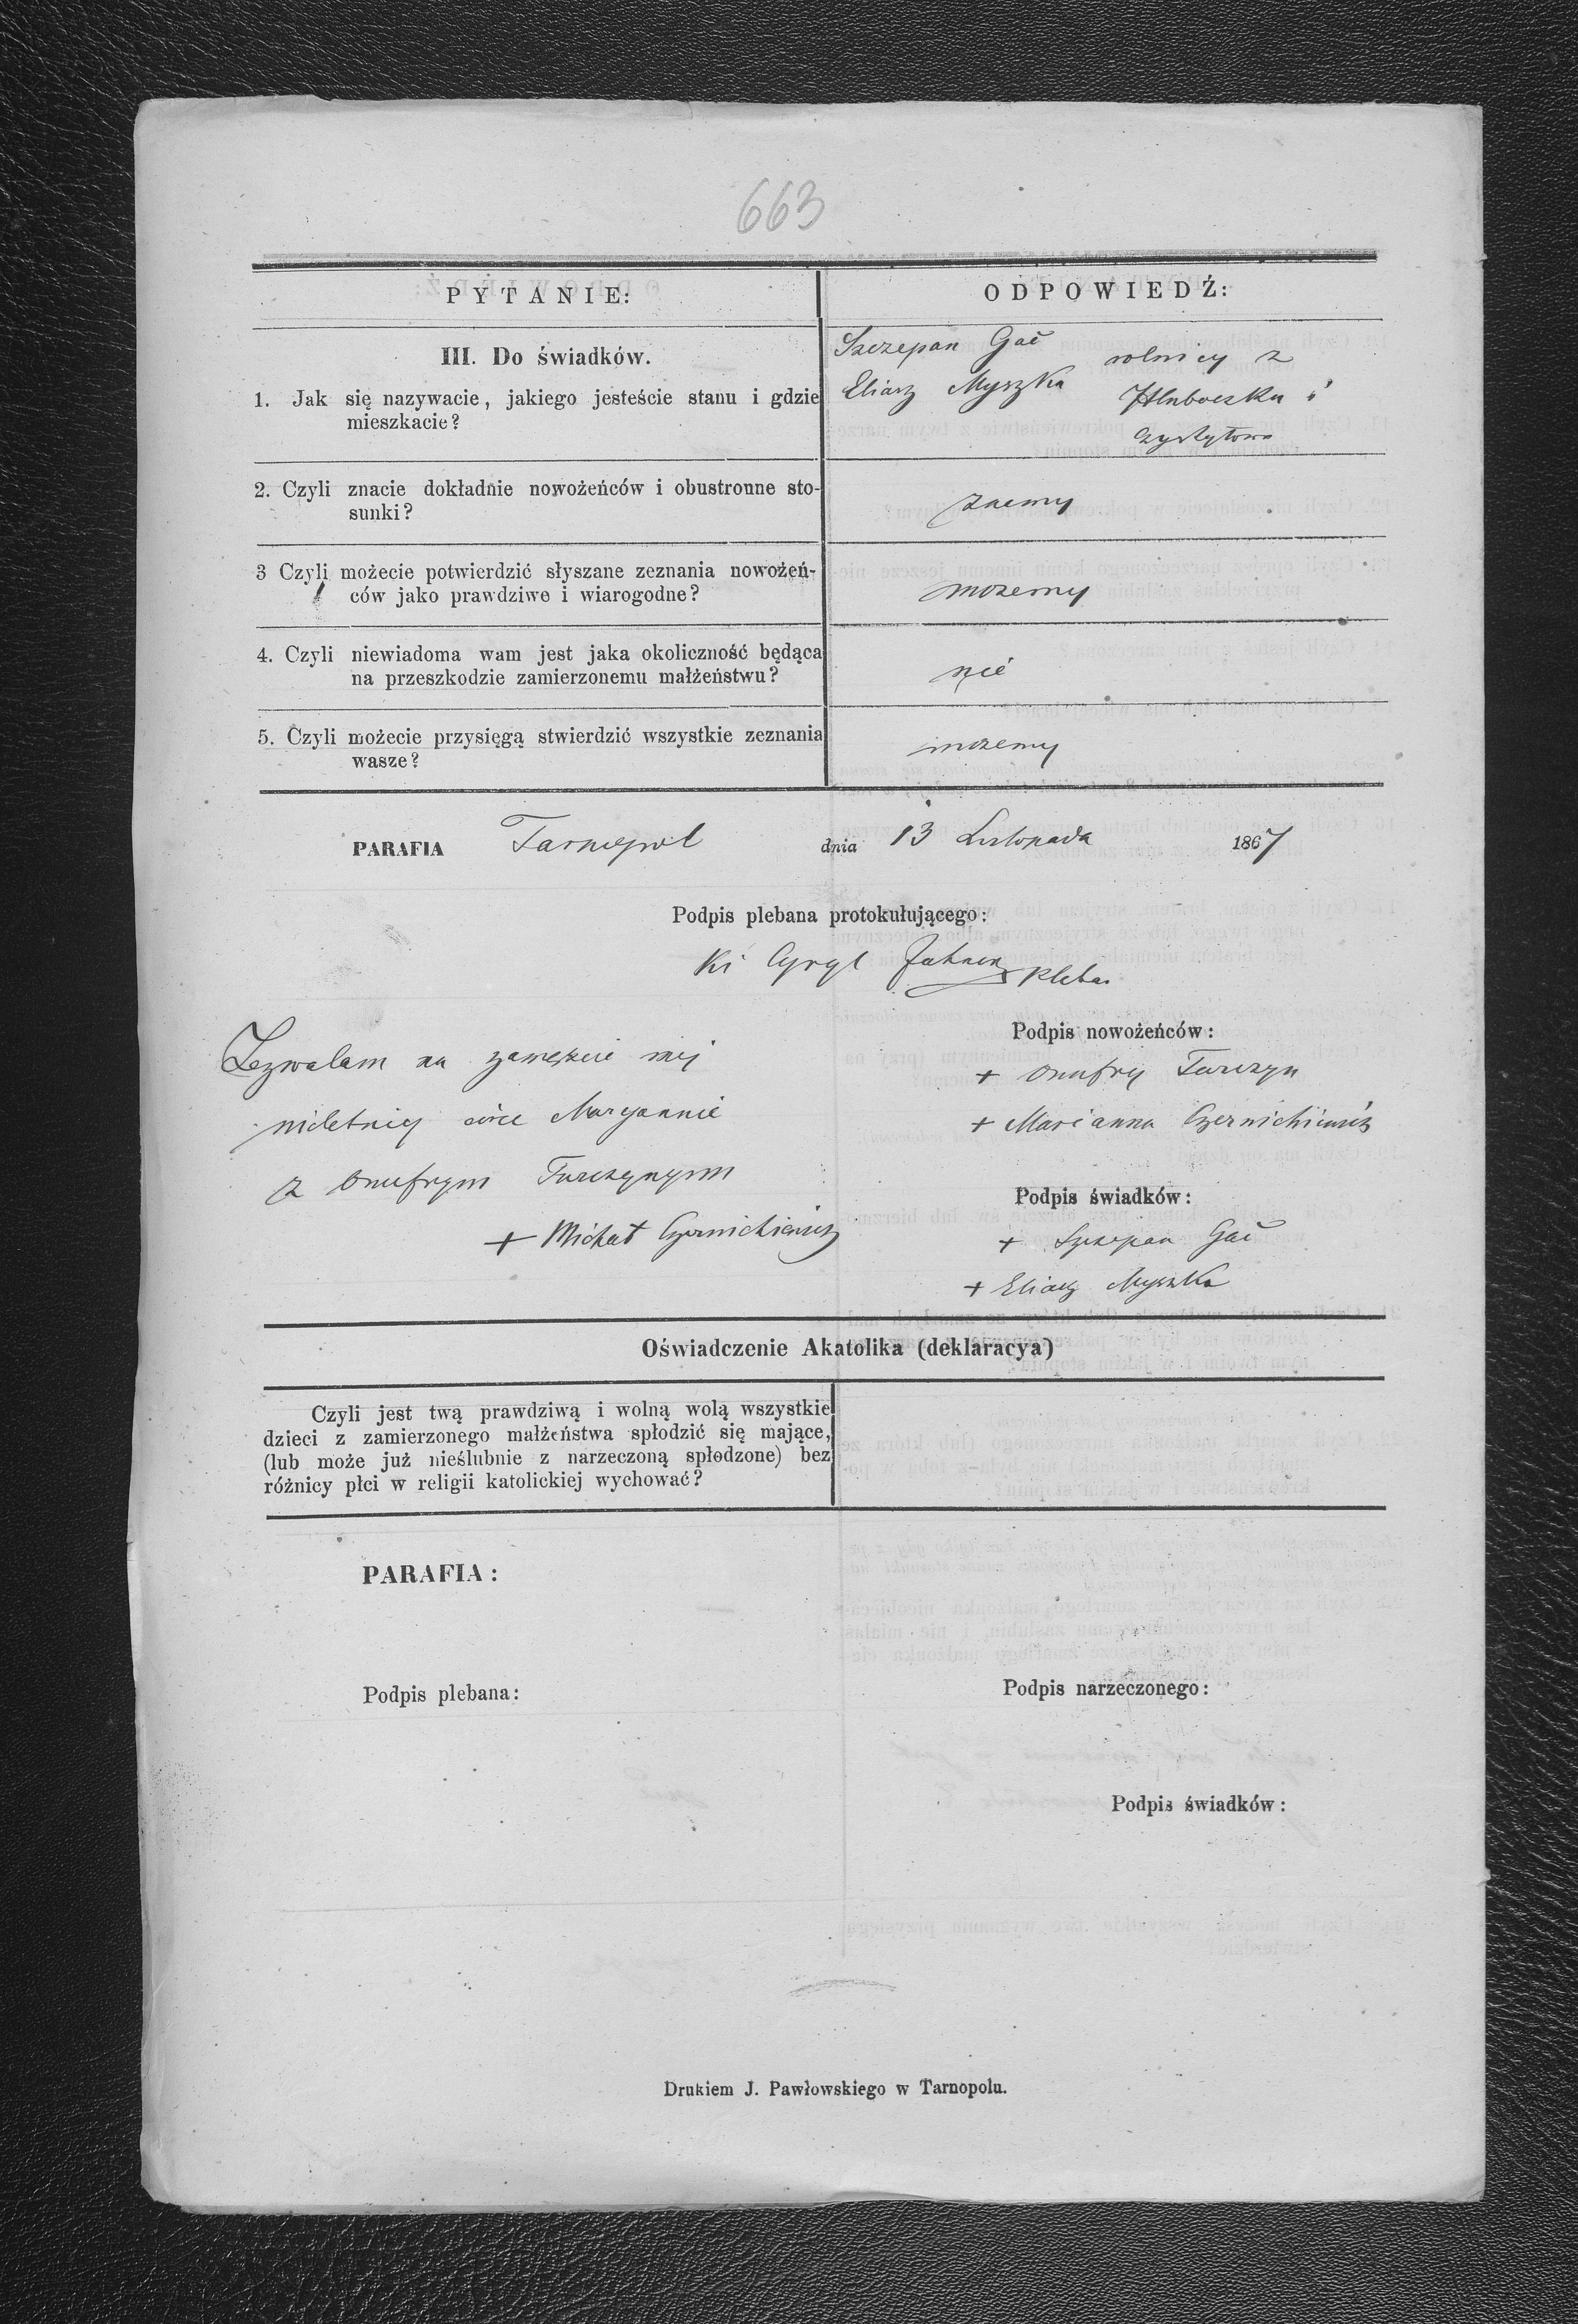 663
PYTANIE:
ODPOWIEDŹ:
III. Do świadków.
1. Jak się nazywacie, jakiego jesteście stanu i gdzie
mieszkacie?
Szczepan Gać rolnicy z
Eliasz Myszka Hłuboczku i
2. Czyli znacie dokładnie nowożeńców i obustronne sto-
sunki?
znamy
3 Czyli możecie potwierdzić słyszane zeznania nowożeń-
ców jako prawdziwe i wiarogodne?
możemy
4. Czyli niewiadoma wam jest jaka okoliczność będąca
na przeszkodzie zamierzonemu małżeństwu?
nie
5. Czyli możecie przysięgą stwierdzić wszystkie zeznania
wasze?
możemy
PARAFIA Tarnopol dnia 13 Listopada 1867
Podpis plebana protokułującego:
Cyryl pleban
Zezwalam na zamęście mej
nieletniej córce Maryannie
z Onufrym Turczynym
+ Michał Czernichiewicz
Podpis nowożeńców:
+ Onufry Turczyn
+ Marianna Czernichiewicz
Podpis świadków:
+ Szczepan Gać
+ Eliasz Myszka
Oświadczenie Akatolika (deklaracya)
Czyli jest twą prawdziwą i wolną wolą wszystkie
dzieci z zamierzonego małżeństwa spłodzić się mające,
(lub może już nieślubnie z narzeczoną spłodzone) bez
różnicy płci w religii katolickiej wychować?
PARAFIA:
Podpis plebana:
Podpis narzeczonego:
Podpis świadków:
Drukiem J. Pawłowskiego w Tarnopolu.